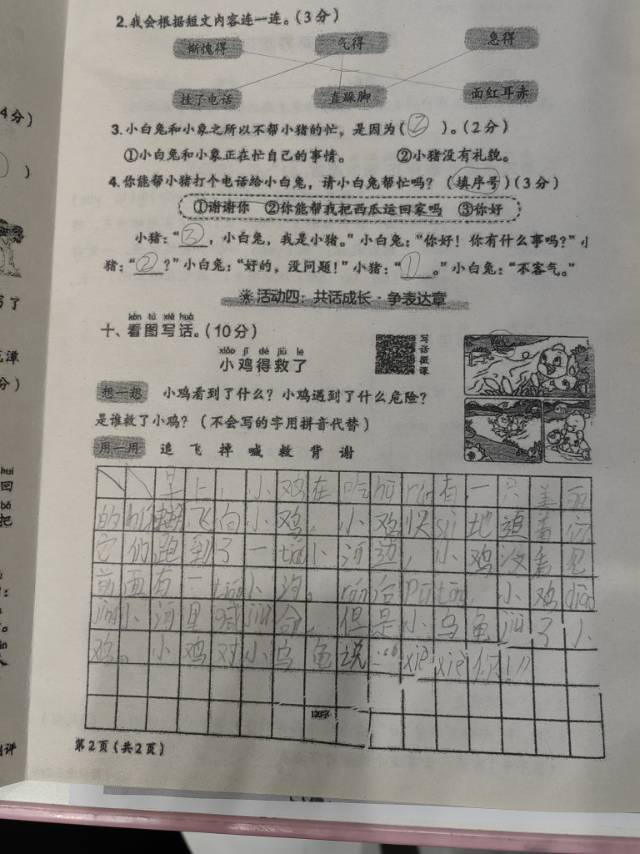 2.我会根据短文内容连一连。(3分)
惭愧得 气得 急得
挂了电话 直跺脚 面红耳赤
3.小白兔和小象之所以不帮小猪的忙，是因为(②)。(2分)
①小白兔和小象正在忙自己的事情。 ②小猪没有礼貌。
4.你能帮小猪打个电话给小白兔，请小白兔帮忙吗？(填序号)(3分)
①谢谢你 ②你能帮我把西瓜运回家吗 ③你好
小猪：“③，小白兔，我是小猪。”小白兔：“你好！你有什么事吗？”小
猪：“②？”小白兔：“好的，没问题！”小猪：“①。”小白兔：“不客气。”
活动四：共话成长·争表达章
kàn tú xiě huà
十、看图写话。(10分)
xiǎo jī dé jiù le
小鸡得救了
写话微课
想一想 小鸡看到了什么？小鸡遇到了什么危险？
是谁救了小鸡？(不会写的字用拼音代替)
用一用 追 飞 掉 喊 救 背 谢
早上，小鸡在吃 有一只美丽
的 飞向小鸡，小鸡快 地追着
它们跑到了一 小河边，小鸡没看见
前面有一 小沟。 小鸡
小河里喊 命，但是小乌龟 了小
鸡。小鸡对小乌龟说：“xiè xiè 你！”
第2页(共2页)
4分)
)
写了
分)
回
把